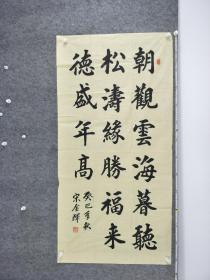 朝觀雲海暮聽
松濤緣勝福来
德盛年高
癸巳年秋
宋金輝